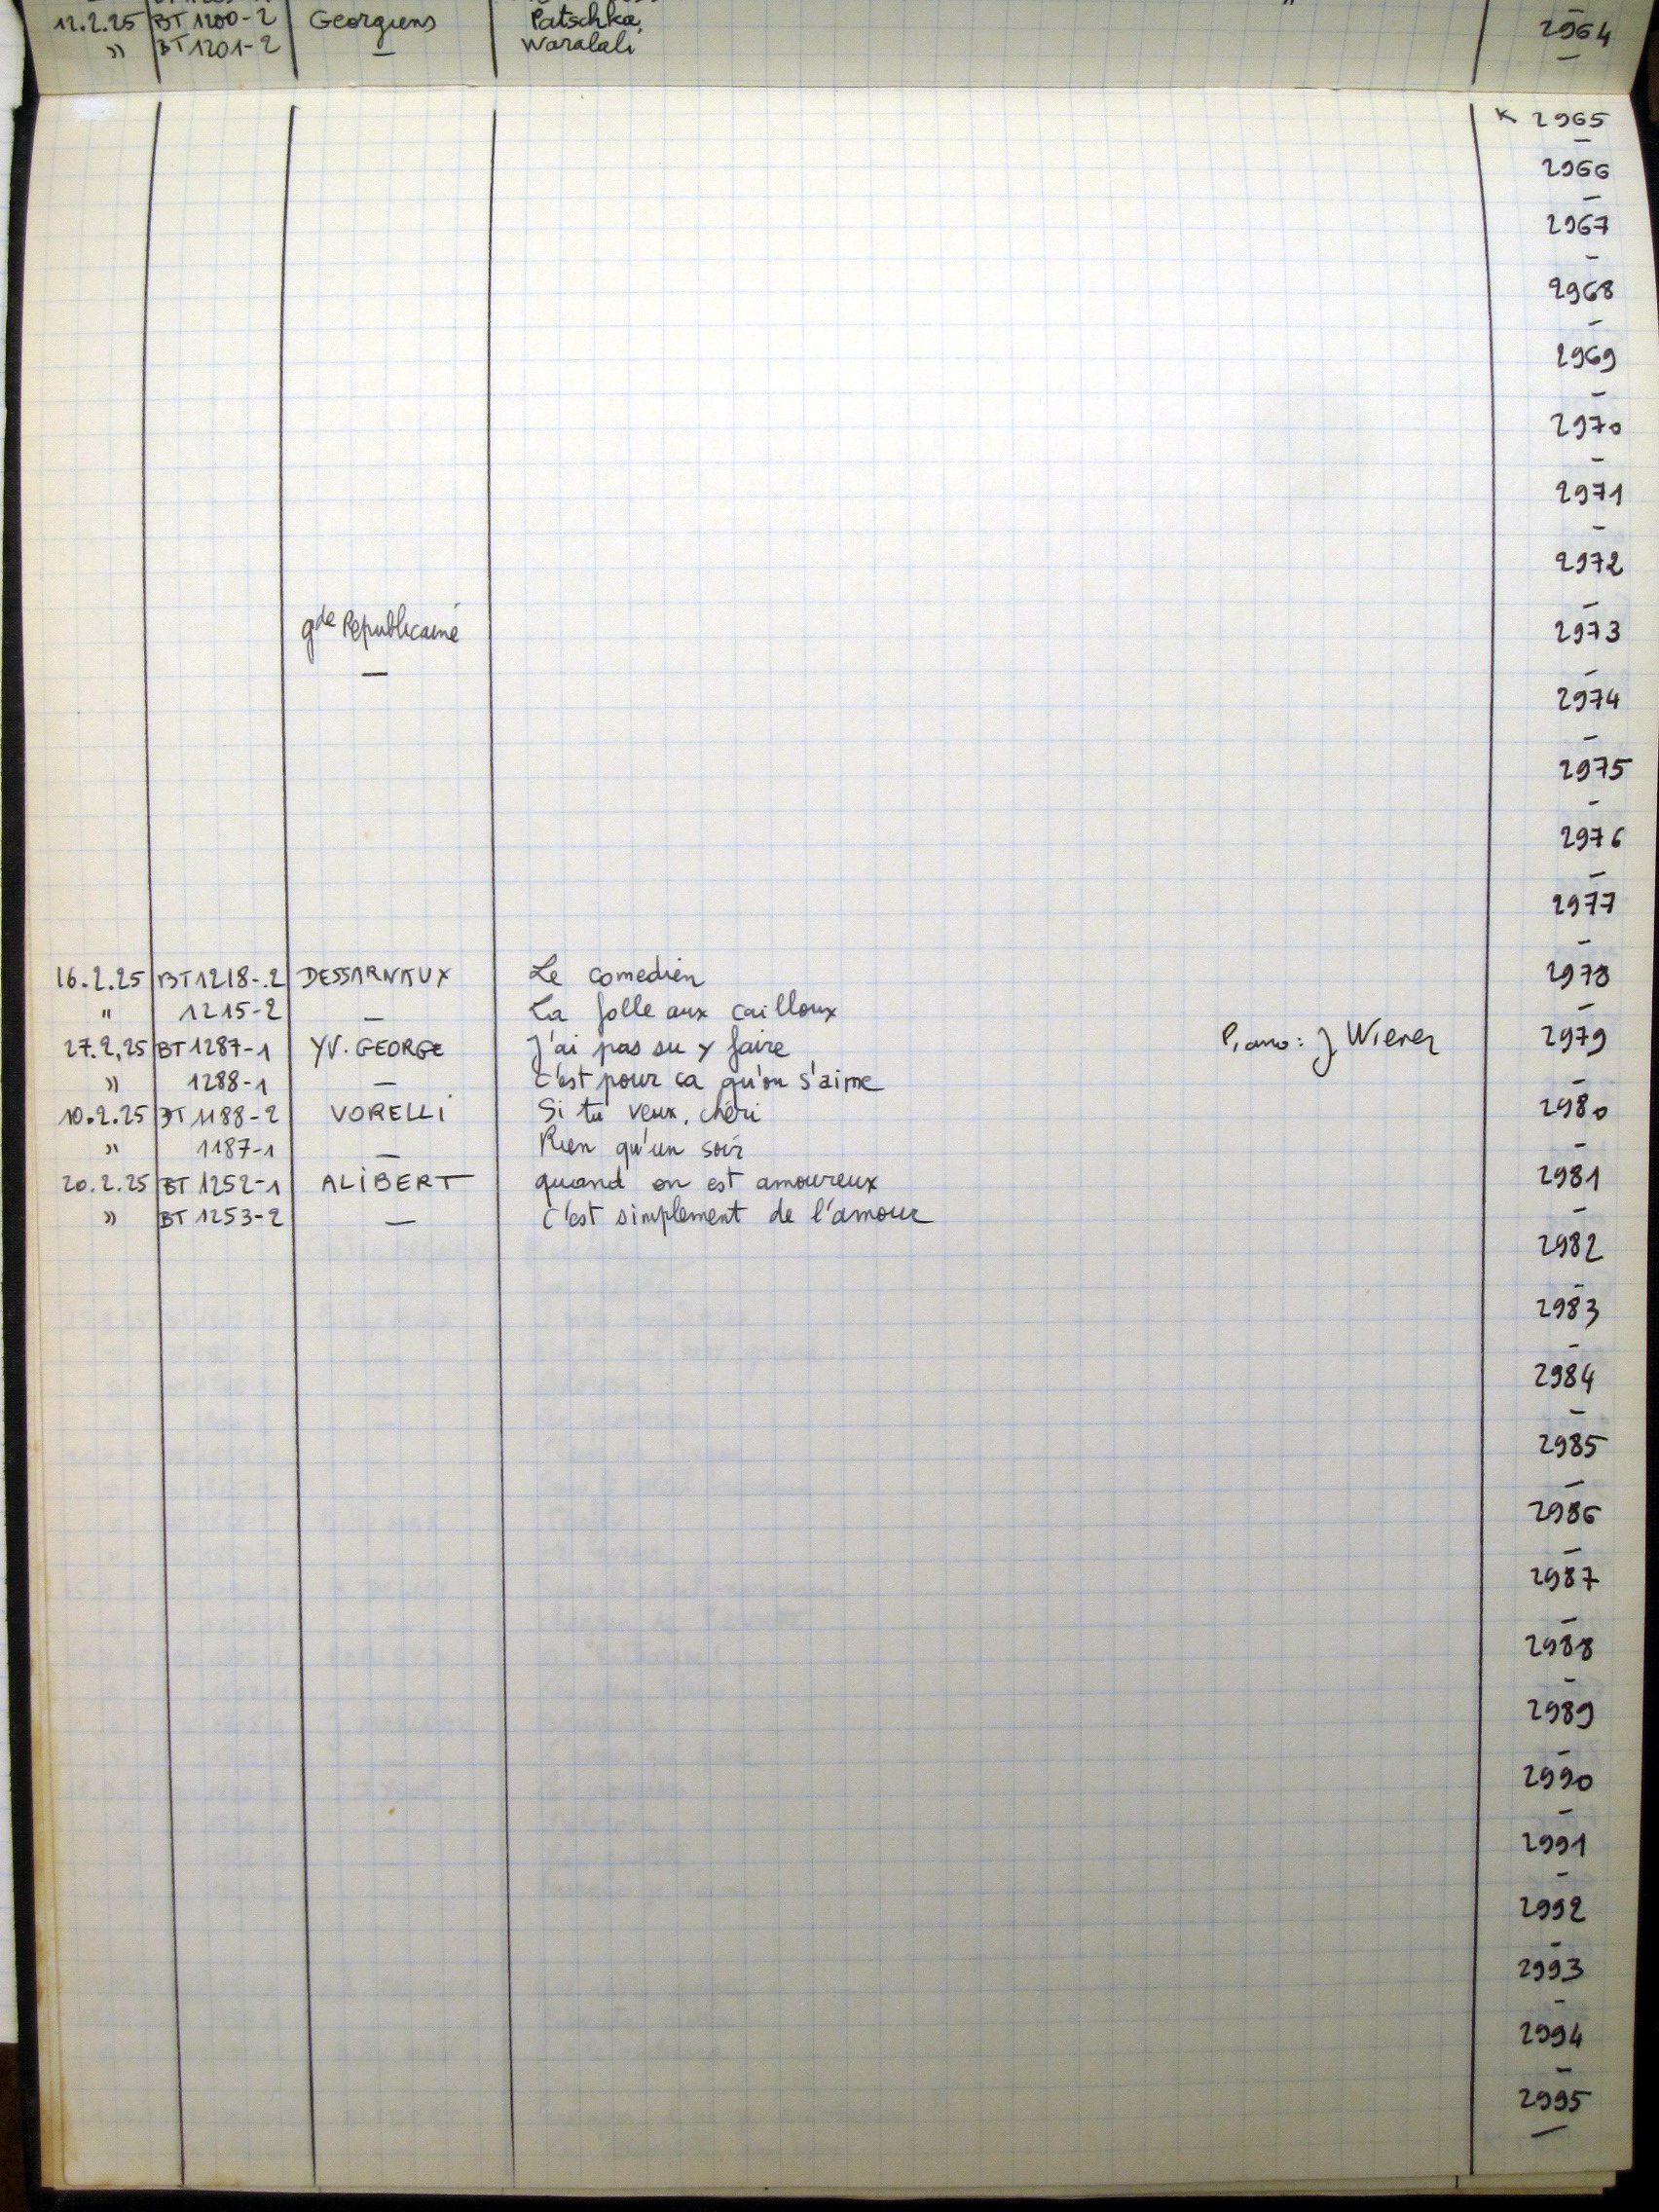 12.2.25 BT 1200-2 Georgiens Patschka 2964
» BT 1201-2 — Waralali —
K 2965
—
2966
—
2967
—
2968
—
2969
—
2970
—
2971
—
2972
—
gde Republicaine 2973
— —
2974
—
2975
—
2976
—
2977
—
16.2.25 BT 1218-.2 DESSARNAUX Le comedien 2978
" 1215-2 — La folle aux cailloux —
27.2.25 BT 1287-1 YV. GEORGE J'ai pas su y faire Piano: J Wiener 2979
» 1288-1 — c'est pour ca qu'on s'aime —
10.2.25 BT 1188-2 VORELLI Si tu veux, chéri 2980
» 1187-1 — Rien qu'un soir —
20.2.25 BT 1252-1 ALIBERT quand on est amoureux 2981
» BT 1253-2 — c'est simplement de l'amour —
2982
—
2983
—
2984
—
2985
—
2986
—
2987
—
2988
—
2989
—
2990
—
2991
—
2992
—
2993
—
2994
—
2995
—